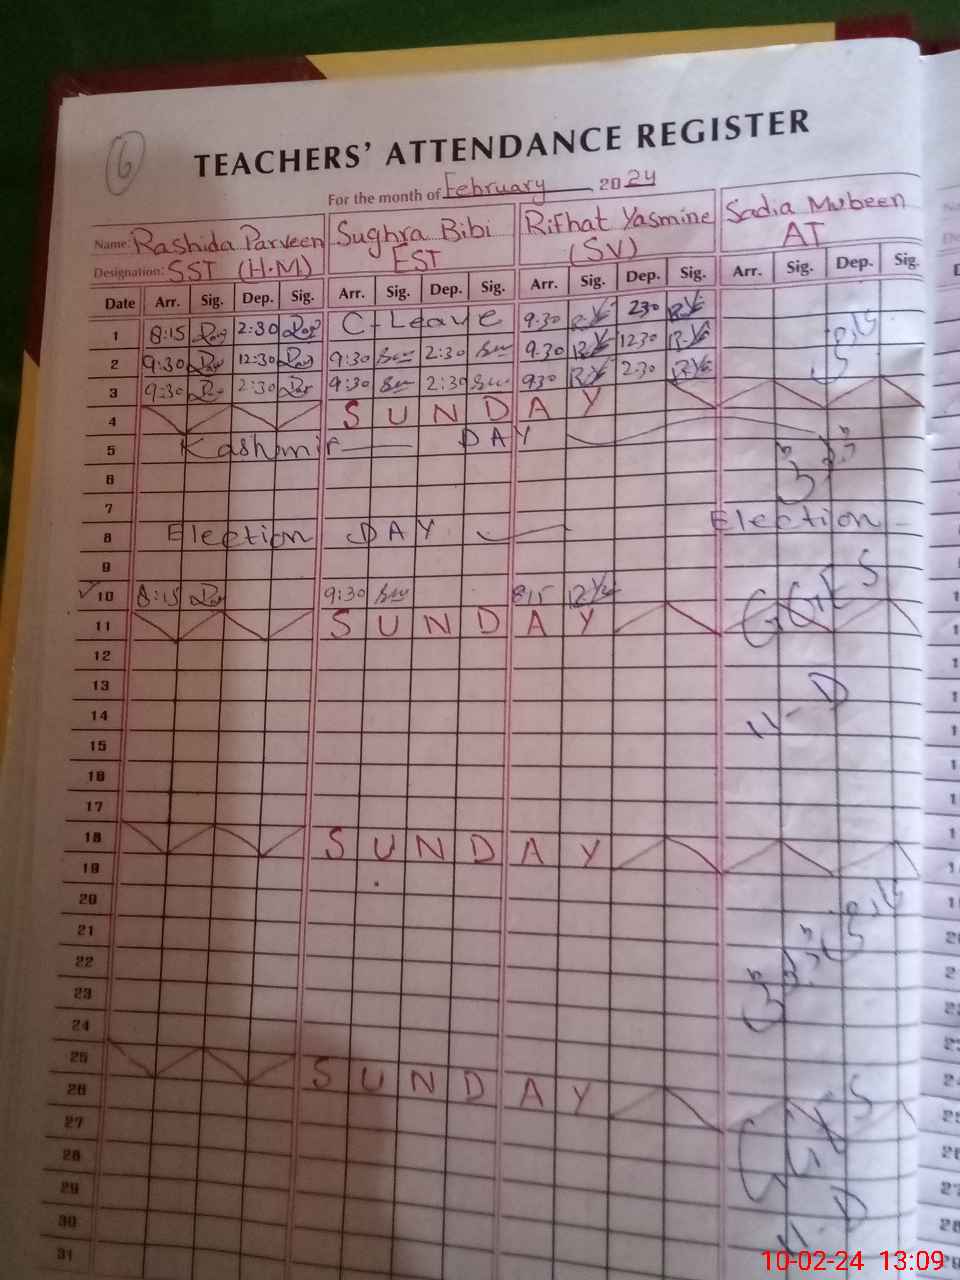 6
TEACHERS' ATTENDANCE REGISTER
For the month of February 2024
Name: Rashida Parveen Sughra Bibi Rifhat Yasmine Sadia Mubeen
Designation: SST (H.M) EST (SV) AT
Date Arr. Sig. Dep. Sig. Arr. Sig. Dep. Sig. Arr. Sig. Dep. Sig. Arr. Sig. Dep. Sig.
1 8:15 2:30 C-Leave 9-30 230
2 9:30 12:30 9:30 2:30 9-30 1230
3 9:30 2:30 9:30 2:30 930 230
4 SUNDAY
5 Kashmir DAY
6
7
8 Election DAY Election
9
10 8:15 9:30 8:15
11 SUNDAY
GGES
12
13
11-D
14
15
16
17
18 SUNDAY
19
20
21
22
23
24
25 SUNDAY
26
27
GGES
28
29
11-D
30
31
10-02-24 13:09